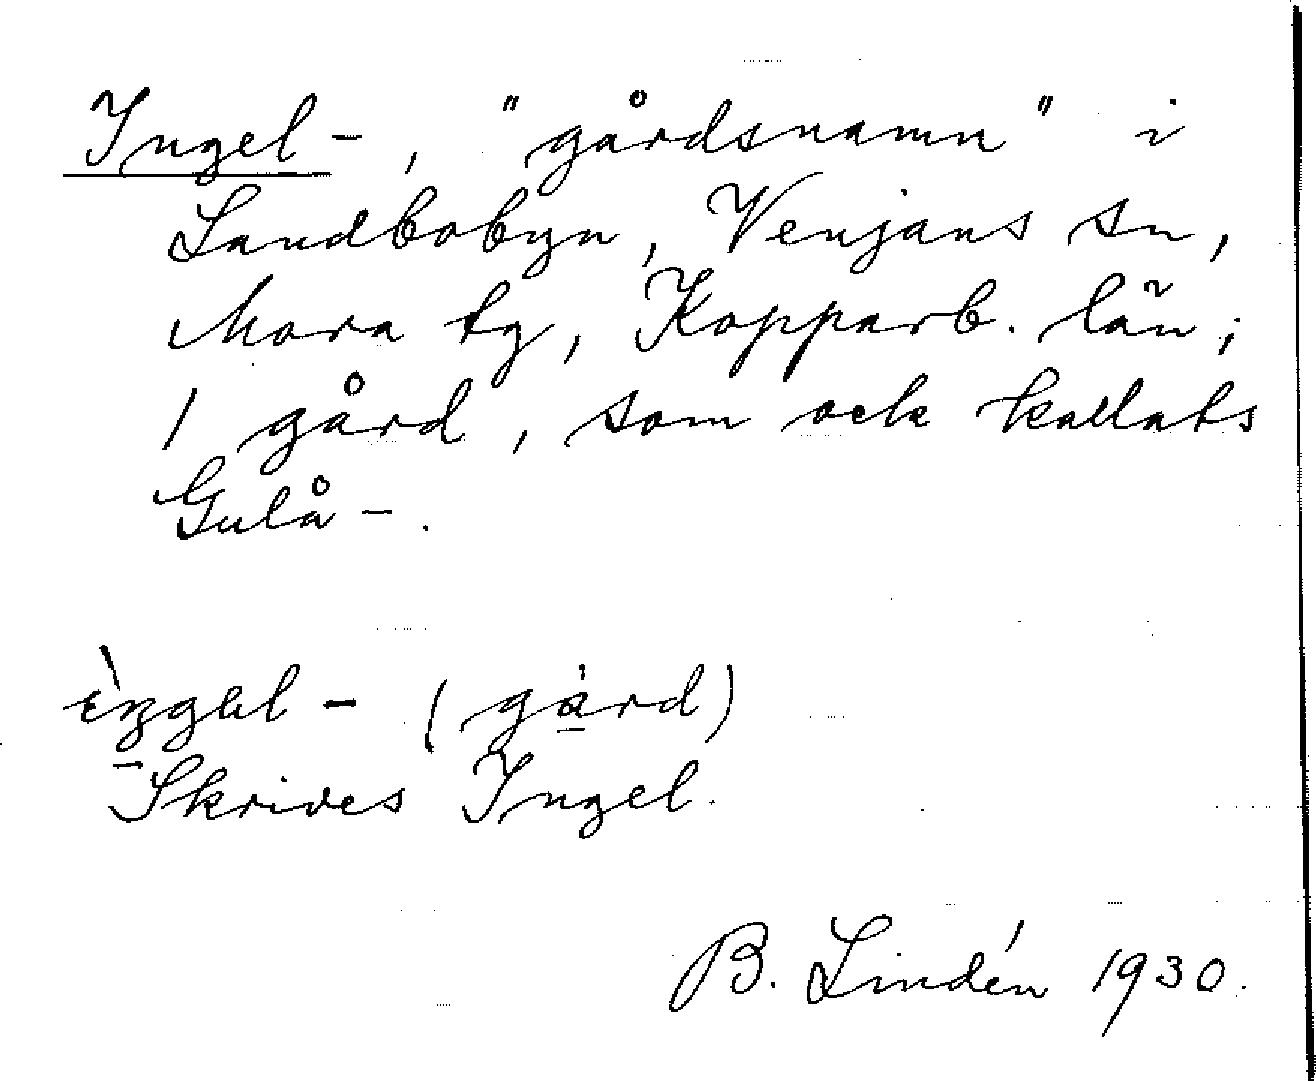 Ingel-, "gårdsnamn" i
Landbobyn, Venjans sn,
Mora tg, Kopparb. län;
1 gård, som ock kallats
Gulå-.
(gård)
Skrives Ingel.
B. Lindén 1930.